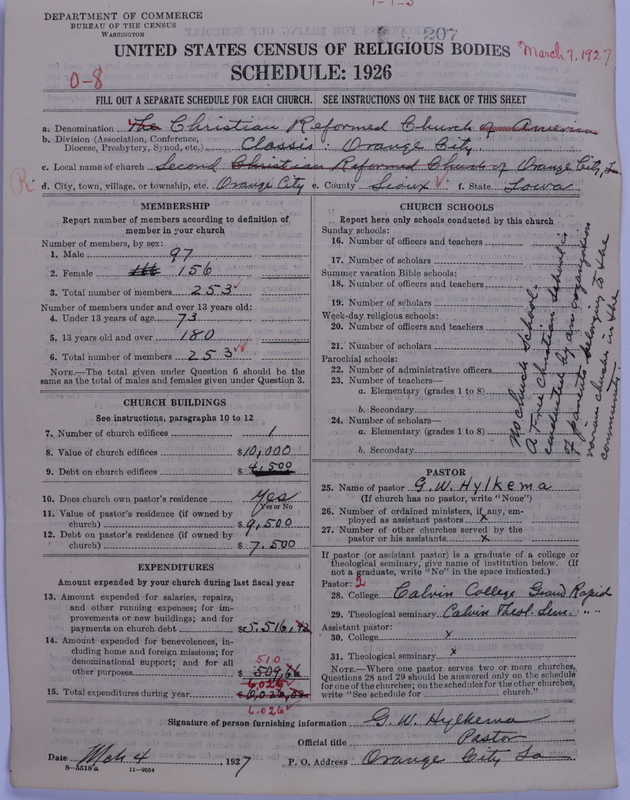 DEPARTMENT OF COMMERCE
BUREAU OF THE CENSUS
WASHINGTON
207
UNITED STATES CENSUS OF RELIGIOUS BODIES
March 7, 1927
SCHEDULE: 1926
0-8
FILL OUT A SEPARATE SCHEDULE FOR EACH CHURCH. SEE INSTRUCTIONS ON THE BACK OF THIS SHEET
a. Denomination The Christian Reformed Church of America
b. Division (Association, Conference, Diocese, Presbytery, Synod, etc.) Classis: Orange City.
c. Local name of church Second Christian Reformed Church of Orange City, Ia.
R
d. City, town, village, or township, etc. Orange City e. County Sioux f. State Iowa
MEMBERSHIP
Report number of members according to definition of
member in your church
Number of members, by sex:
1. Male 97
2. Female 166 156
3. Total number of members 253
Number of members under and over 13 years old:
4. Under 13 years of age 73
5. 13 years old and over 180
6. Total number of members 253
NOTE.—The total given under Question 6 should be
same as the total of males and females given under Question 3.
CHURCH BUILDINGS
See instructions, paragraphs 10 to 12
7. Number of church edifices 1
8. Value of church edifices $10,000
9. Debt on church edifices $4,500
10. Does church own pastor's residence Yes
Yes or No
11. Value of pastor's residence (if owned by
church) $9,500
12. Debt on pastor's residence (if owned by
church) $7,500
EXPENDITURES
Amount expended by your church during last fiscal year
13. Amount expended for salaries, repairs,
and other running expenses; for im-
provements or new buildings; and for
payments on church debt $5,516,42
14. Amount expended for benevolences, in-
cluding home and foreign missions; for
denominational support; and for all
510
other purposes $509,66
6.026
15. Total expenditures during year $6,026,08
6.026
CHURCH SCHOOLS
Report here only schools conducted by this church
Sunday schools:
16. Number of officers and teachers
17. Number of scholars
Summer vacation Bible schools:
18. Number of officers and teachers
19. Number of scholars
Week-day religious schools:
20. Number of officers and teachers
21. Number of scholars
Parochial schools:
22. Number of administrative officers
23. Number of teachers—
a. Elementary (grades 1 to 8)
b. Secondary
24. Number of scholars—
a. Elementary (grades 1 to 8)
b. Secondary
No church School.
A Free Christian School is
conducted by an organization
of parents belonging to the
various churches in the
community.
PASTOR
25. Name of pastor G. W. Hylkema
(If church has no pastor, write "None")
26. Number of ordained ministers, if any, em-
ployed as assistant pastors x
27. Number of other churches served by the
pastor or his assistants x
If pastor (or assistant pastor) is a graduate of a college or
theological seminary, give name of institution below. (If
not a graduate, write "No" in the space indicated.)
Pastor: 2
28. College Calvin College Grand Rapid
29. Theological seminary Calvin Theol. Sem. " "
Assistant pastor:
30. College x
31. Theological seminary x
NOTE.—Where one pastor serves two or more churches,
Questions 28 and 29 should be answered only on the schedule
for one of the churches; on the schedules for the other churches,
write "See schedule for church."
Signature of person furnishing information G. W. Hylkema
Official title Pastor
Date Mch 4, 1927 P. O. Address Orange City Ia
8-5518a 11-9054